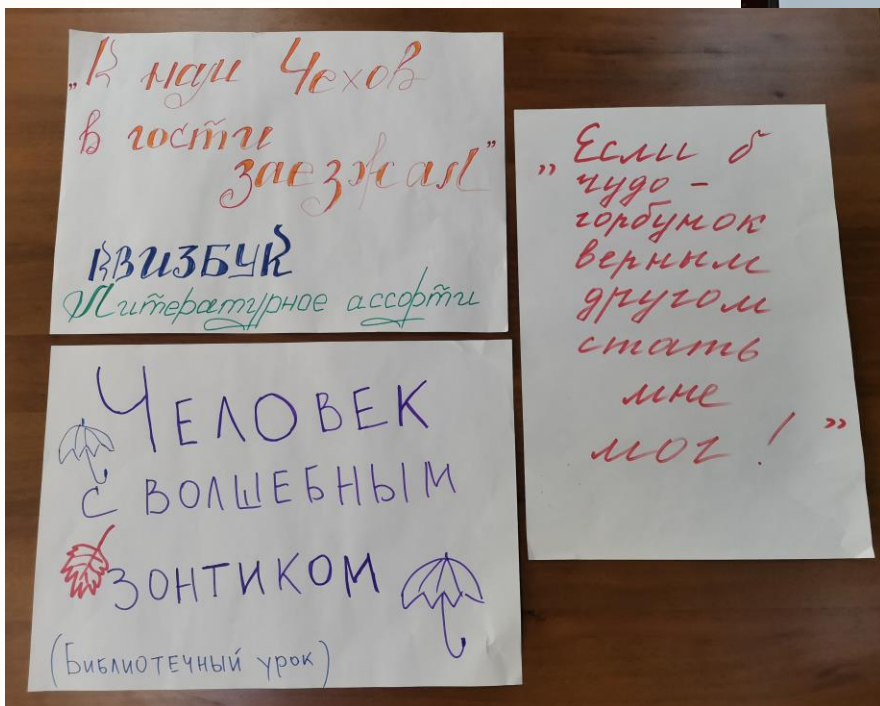 „К нам Чехов
в гости
заезжал”
КВИЗБУК
Литературное ассорти
Человек
с волшебным
зонтиком
(Библиотечный урок)
„Если б
чудо-
горбунок
верным
другом
стать
мне
мог!”